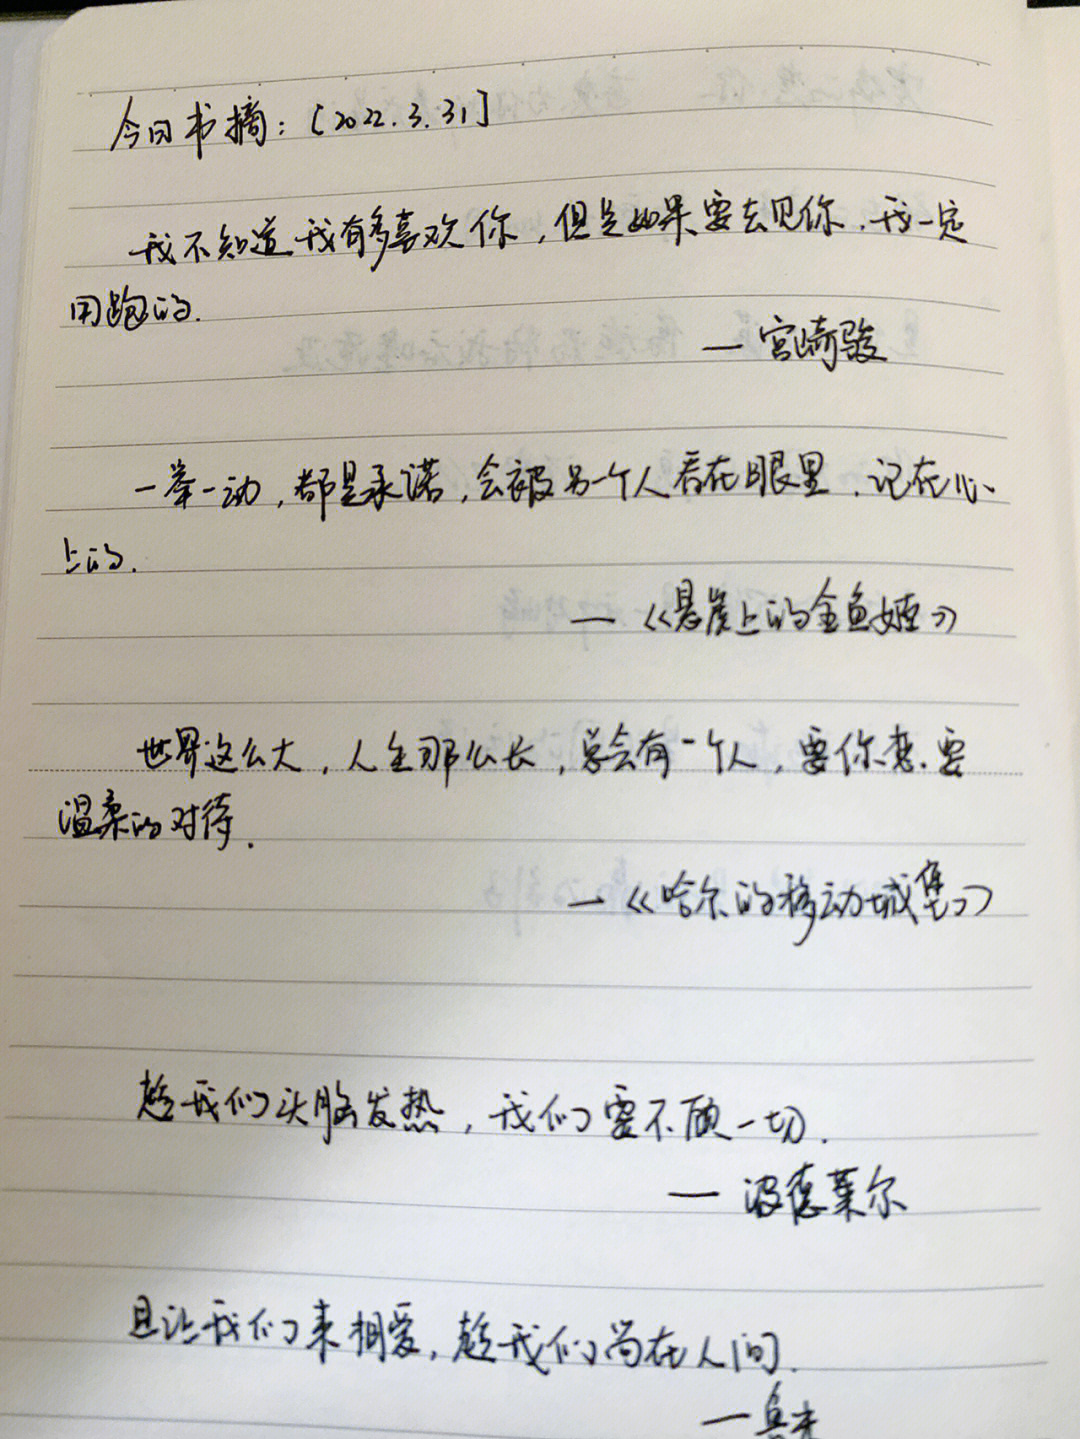 今日书摘：[2022.3.31]
我不知道我有多喜欢你，但是如果要去见你，我一定
用跑的.
— 宫崎骏
一举一动，都是承诺，会被另一个人看在眼里，记在心
上的.
— 《悬崖上的金鱼姬》
世界这么大，人生那么长，总会有一个人，要你想要
温柔的对待.
— 《哈尔的移动城堡》
趁我们头脑发热，我们要不顾一切.
— 波德莱尔
且让我们来相爱，趁我们尚在人间.